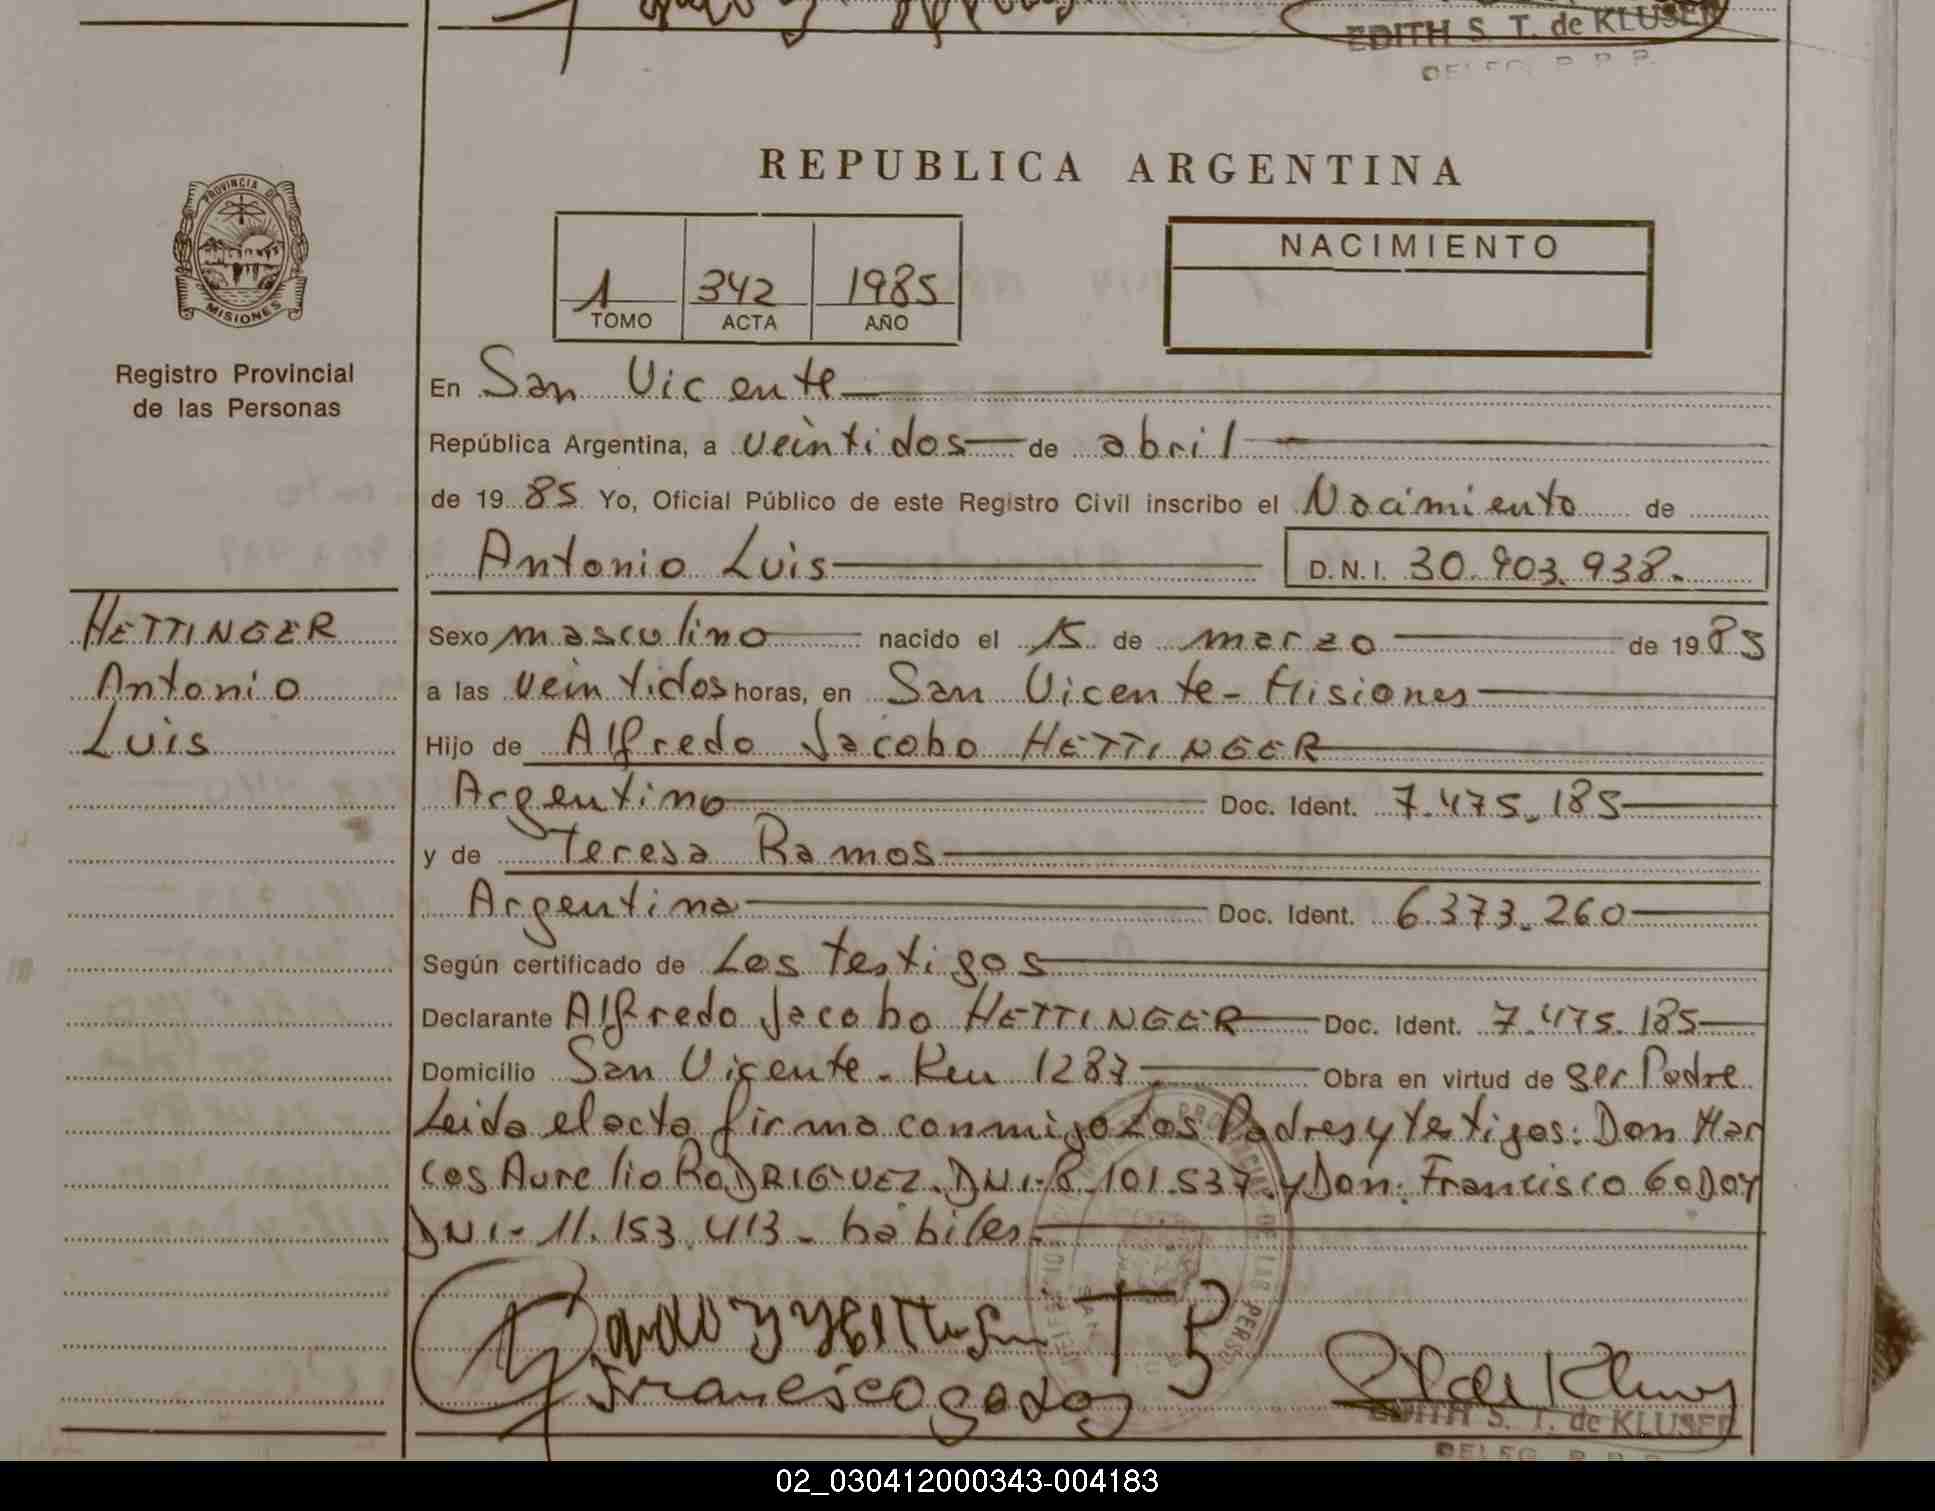 EDITH S. T. de KLUSER
REPUBLICA ARGENTINA
PROVINCIA DE
MISIONES
Registro Provincial
de las Personas
1 342 1985
TOMO ACTA AÑO
NACIMIENTO
En San Vicente
República Argentina, a veintidos de abril
de 1985 Yo, Oficial Público de este Registro Civil inscribo el Nacimiento de
Antonio Luis D.N.I. 30.903.938.
HETTINGER
Antonio
Luis
Sexo masculino nacido el 15 de marzo de 1985
a las veintidos horas, en San Vicente - Misiones
Hijo de Alfredo Jacobo HETTINGER
Argentino Doc. Ident. 7.475.185
y de Teresa Ramos
Argentina Doc. Ident. 6.373.260
Según certificado de Los testigos
Declarante Alfredo Jacobo HETTINGER Doc. Ident. 7.475.185
Domicilio San Vicente - Km 1287 Obra en virtud de ser Padre
Leida el acta firma conmigo Los Padres y testigos: Don Mar
cos Aurelio RODRIGUEZ. DNI-8.101.537. y Don: Francisco GODOY
DNI-11.153.413 - habiles.
T R
Francisco godoy
EDITH S. T. de KLUSER
DELEG. R. P. P.
02_030412000343-004183